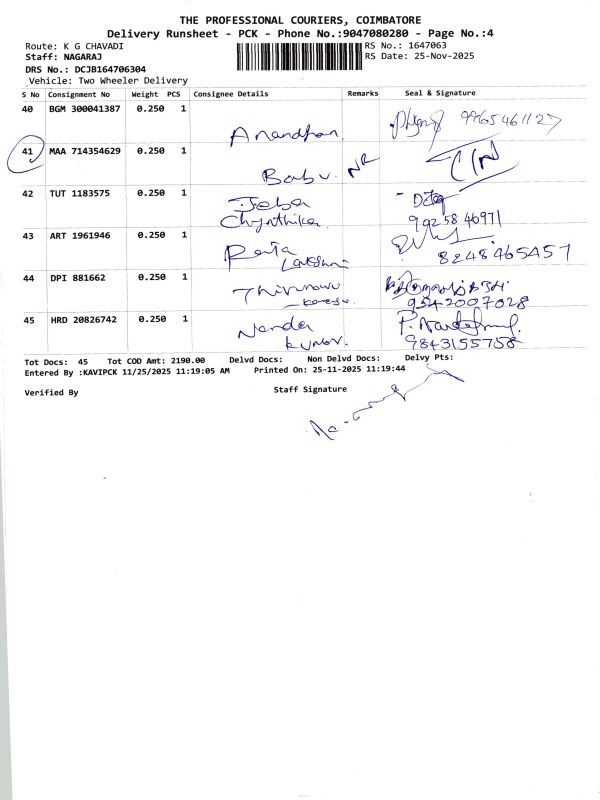 THE PROFESSIONAL COURIERS, COIMBATORE
Delivery Runsheet - PCK - Phone No.:9047080280 - Page No.:4
Route: K G CHAVADI
RS No.: 1647063
Staff: NAGARAJ
RS Date: 25-Nov-2025
DRS No.: DCJB164706304
Vehicle: Two Wheeler Delivery
S No Consignment No Weight PCS Consignee Details Remarks Seal & Signature
40 BGM 300041387 0.250 1
Anandhan 9965461127
41 MAA 714354629 0.250 1
Babu NR
42 TUT 1183575 0.250 1
Jeba
9925846971
43 ART 1961946 0.250 1
Lakshmi 8248465457
44 DPI 881662 0.250 1
9542007028
45 HRD 20826742 0.250 1
Nanda
Kumar. 9843155758
Tot Docs: 45 Tot COD Amt: 2190.00 Delvd Docs: Non Delvd Docs: Delvy Pts:
Entered By :KAVIPCK 11/25/2025 11:19:05 AM Printed On: 25-11-2025 11:19:44
Verified By Staff Signature